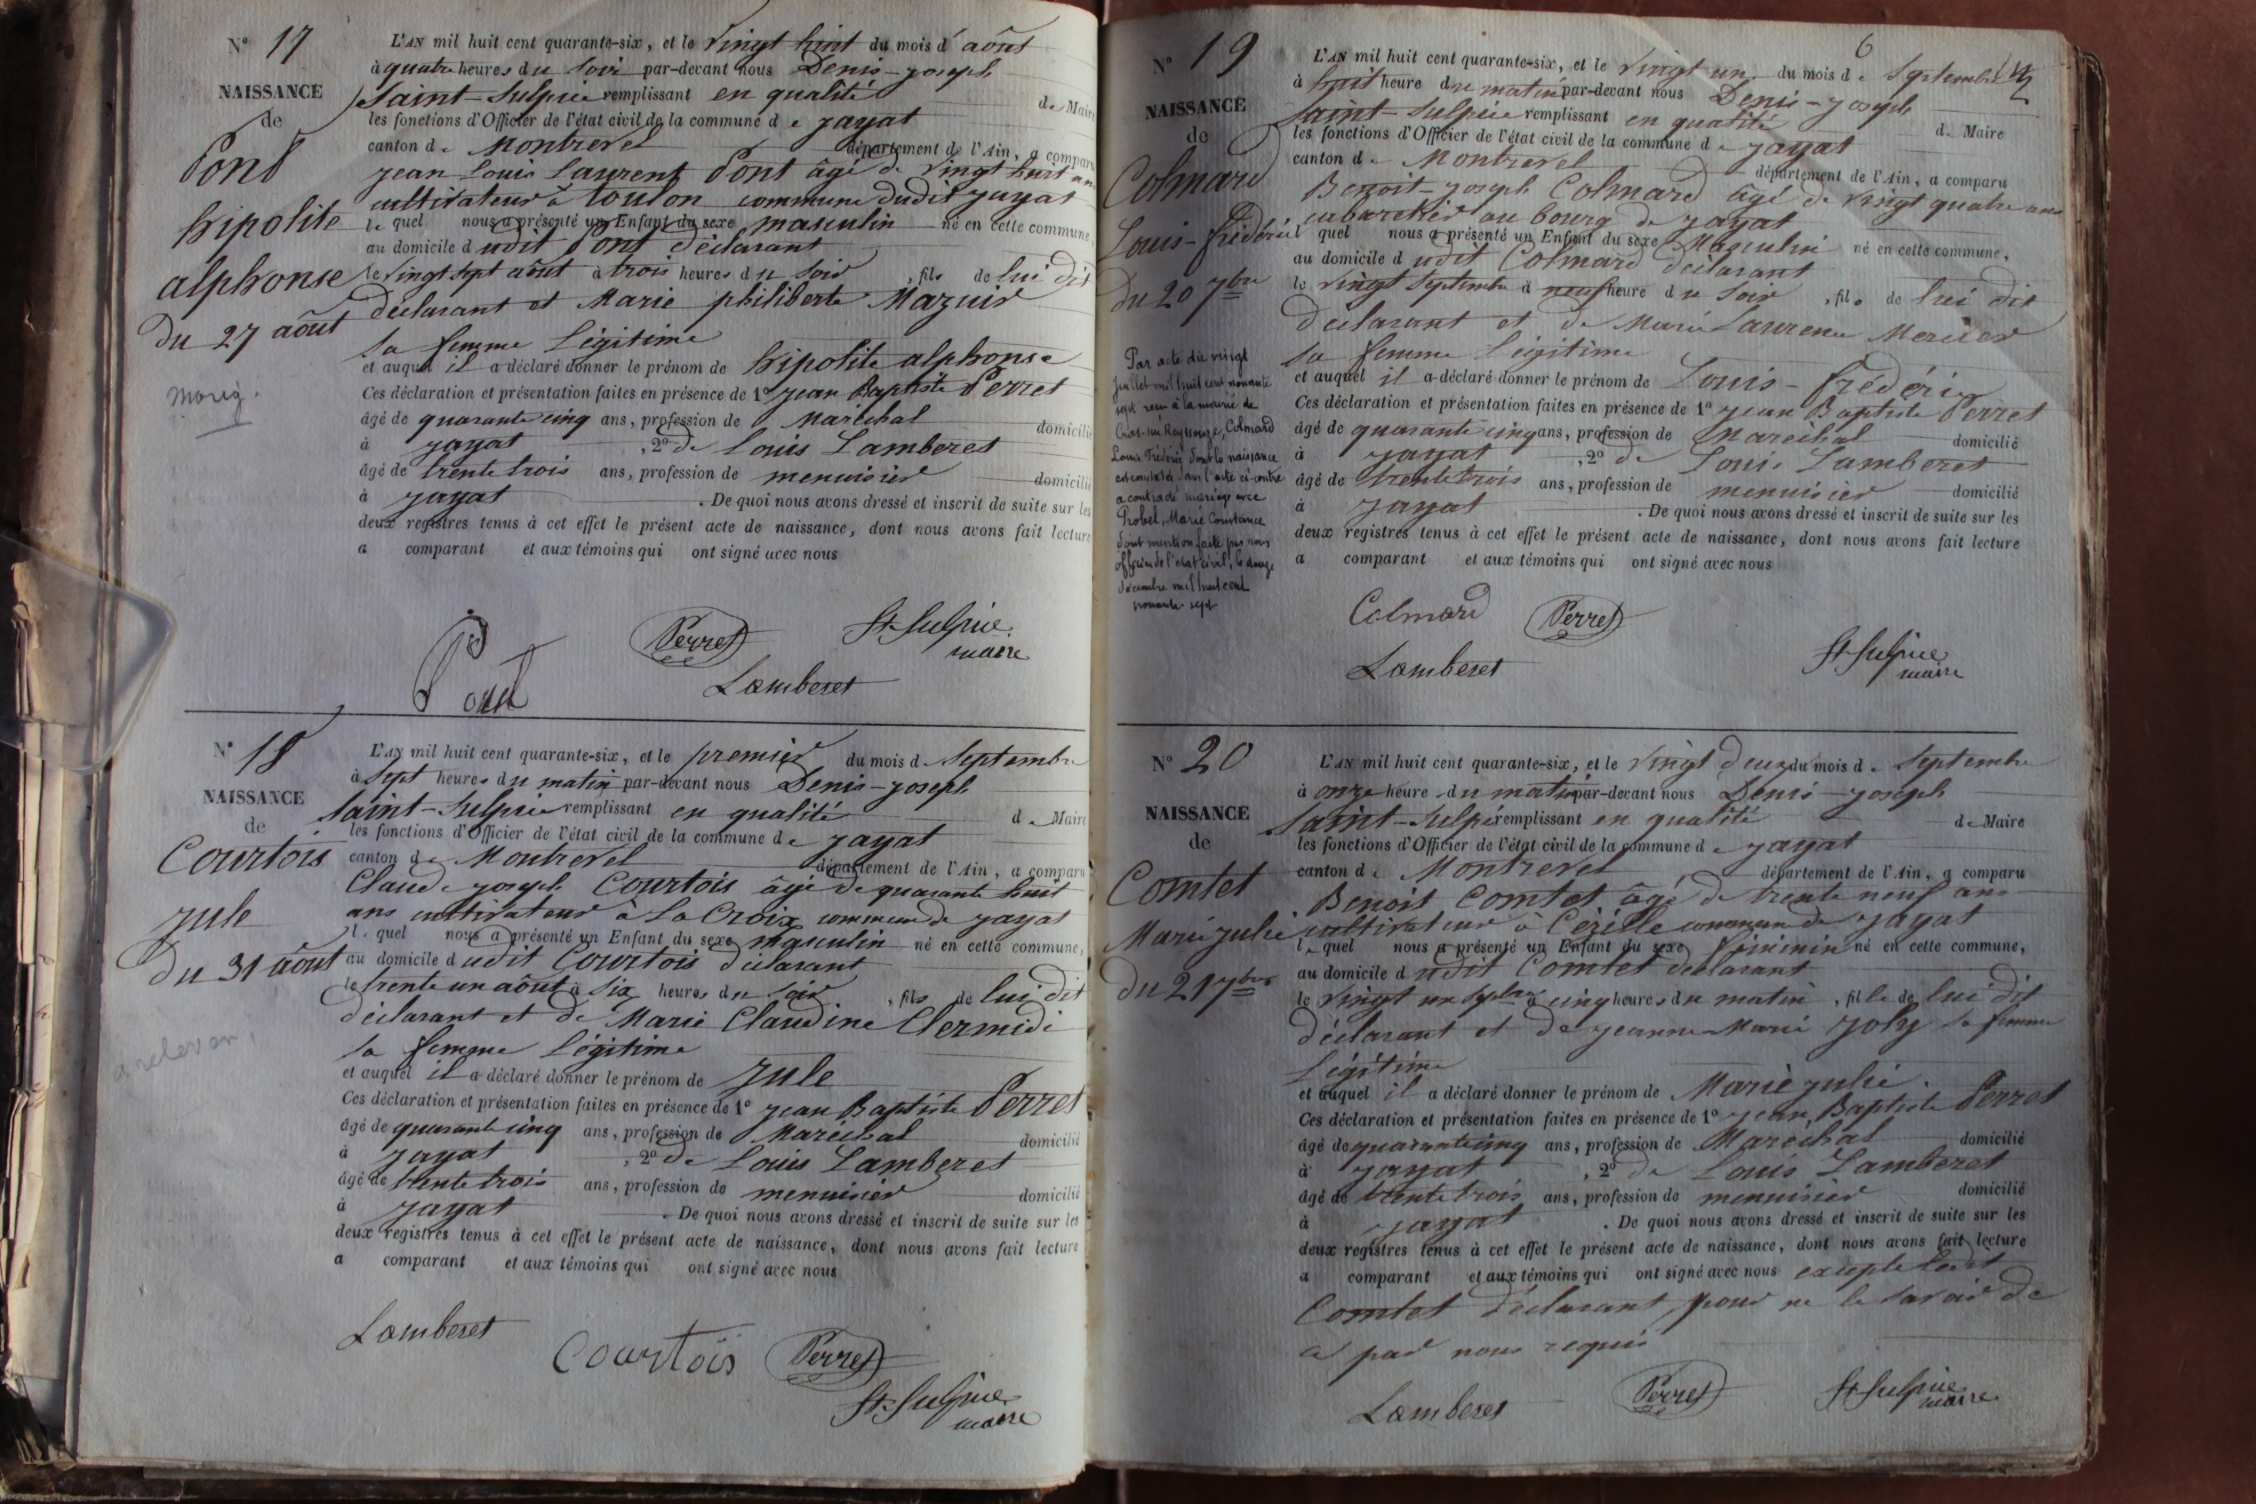 N° 17
NAISSANCE
de
Pont
hipolite
alphonse
du 27 août
L'AN mil huit cent quarante-six, et le vingt huit du mois d' août
à quatre heures du soir par-devant nous Denis-joseph
Saint-Sulpice remplissant en qualité de Maire
les fonctions d'Officier de l'état civil de la commune de jayat
canton de Montrevel département de l'Ain, a comparu
jean Louis Laurent Pont âgé de vingt huit ans
cultivateur à toulon commune dudit jayat
lequel nous a présenté un Enfant du sexe masculin né en cette commune,
au domicile dudit Pont déclarant
le vingt sept août à trois heures du soir, fils de lui dit
déclarant et Marie philiberte Mazuir
sa femme légitime
et auquel il a déclaré donner le prénom de hipolite alphonse
Ces déclaration et présentation faites en présence de 1° jean Baptiste Perret
âgé de quarante cinq ans, profession de Maréchal domicilié
à jayat, 2° de Louis Lamberet
âgé de trente trois ans, profession de menuisier domicilié
à jayat. De quoi nous avons dressé et inscrit de suite sur les
deux registres tenus à cet effet le présent acte de naissance, dont nous avons fait lecture
a comparant et aux témoins qui ont signé avec nous
Pont
Perret
St Sulpice
maire
Lamberet
N° 18
NAISSANCE
de
Courtois
jule
du 31 août
a relever
L'AN mil huit cent quarante-six, et le premier du mois de Septembre
à sept heures du matin par-devant nous Denis-joseph
Saint-Sulpice remplissant en qualité de Maire
les fonctions d'Officier de l'état civil de la commune de jayat
canton de Montrevel département de l'Ain, a comparu
Claude joseph Courtois âgé de quarante huit
ans cultivateur à La Croix commune de jayat
lequel nous a présenté un Enfant du sexe masculin né en cette commune,
au domicile dudit Courtois déclarant
le trente un août à six heures du soir, fils de lui dit
déclarant et de Marie Claudine Clermidi
sa femme légitime
et auquel il a déclaré donner le prénom de jule
Ces déclaration et présentation faites en présence de 1° jean Baptiste Perret
âgé de quarante cinq ans, profession de Maréchal domicilié
à jayat, 2° de Louis Lamberet
âgé de trente trois ans, profession de menuisier domicilié
à jayat. De quoi nous avons dressé et inscrit de suite sur les
deux registres tenus à cet effet le présent acte de naissance, dont nous avons fait lecture
a comparant et aux témoins qui ont signé avec nous
Lamberet
Courtois
Perret
St Sulpice
maire
6
N° 19
NAISSANCE
de
Colmard
Louis-frédéric
du 20 7bre
Par acte du vingt
juillet mil huit cent nonante
sept reçu à la mairie de
Cras-sur Reyssouze, Colmard
Louis Frédéric dont la naissance
est constatée dans l'acte ci-contre
a contracté mariage avec
Probel, Marie Constance
Dont mention faite par nous
officier de l'état civil, le douze
décembre mil huit cent
nonante-sept
L'AN mil huit cent quarante-six, et le vingt un du mois de Septembre
à huit heure du matin par-devant nous Denis-joseph
Saint-Sulpice remplissant en qualité de Maire
les fonctions d'Officier de l'état civil de la commune de jayat
canton de Montrevel département de l'Ain, a comparu
Benoit-joseph Colmard âgé de vingt quatre ans
cabaretier au bourg de jayat
lequel nous a présenté un Enfant du sexe Masculin né en cette commune,
au domicile dudit Colmard déclarant
le vingt septembre à neuf heure du soir, fils de lui dit
déclarant et de Marie Laurence Mercier
sa femme légitime
et auquel il a déclaré donner le prénom de Louis-frédéric
Ces déclaration et présentation faites en présence de 1° jean Baptiste Perret
âgé de quarante cinq ans, profession de Maréchal domicilié
à jayat, 2° de Louis Lamberet
âgé de trente trois ans, profession de menuisier domicilié
à jayat. De quoi nous avons dressé et inscrit de suite sur les
deux registres tenus à cet effet le présent acte de naissance, dont nous avons fait lecture
a comparant et aux témoins qui ont signé avec nous
Colmard
Perret
St Sulpice
maire
Lamberet
N° 20
NAISSANCE
de
Comtet
Marie julie
du 21 7bre
L'AN mil huit cent quarante-six, et le vingt deux du mois de Septembre
à onze heure du matin par-devant nous Denis-joseph
Saint-Sulpice remplissant en qualité de Maire
les fonctions d'Officier de l'état civil de la commune de jayat
canton de Montrevel, département de l'Ain, a comparu
Benoit Comtet âgé de trente neuf ans
cultivateur à Cézille commune de jayat
lequel nous a présenté un Enfant du sexe féminin né en cette commune,
au domicile dudit Comtet déclarant
le vingt un septbre à cinq heures du matin, fille de lui dit
déclarant et de jeanne Marie joly sa femme
légitime
et auquel il a déclaré donner le prénom de Marie julie.
Ces déclaration et présentation faites en présence de 1° jean Baptiste Perret
âgé de quarante cinq ans, profession de Maréchal domicilié
à jayat, 2° de Louis Lamberet
âgé de trente trois ans, profession de menuisier domicilié
à jayat. De quoi nous avons dressé et inscrit de suite sur les
deux registres tenus à cet effet le présent acte de naissance, dont nous avons fait lecture
a comparant et aux témoins qui ont signé avec nous excepté ledit
Comtet déclarant pour ne le savoir de
ce par nous requis
Lamberet
Perret
St Sulpice
maire